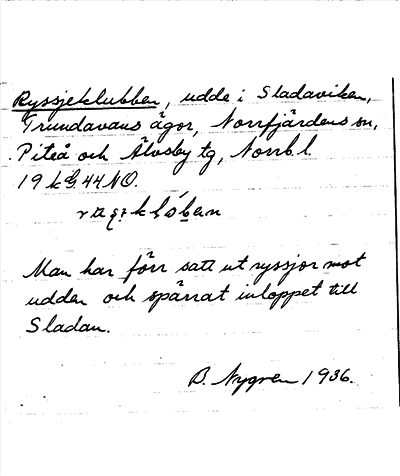 Ryssjeklubben, udde i Sladaviken,
Trundavans ägor, Norrfjärdens sn,
Piteå och Älvsby tg, Norrb.l.
19 k
Man har förr satt ut ryssjor mot
udden och spärrat inloppet till
Sladan.
B. Nygren 1936.